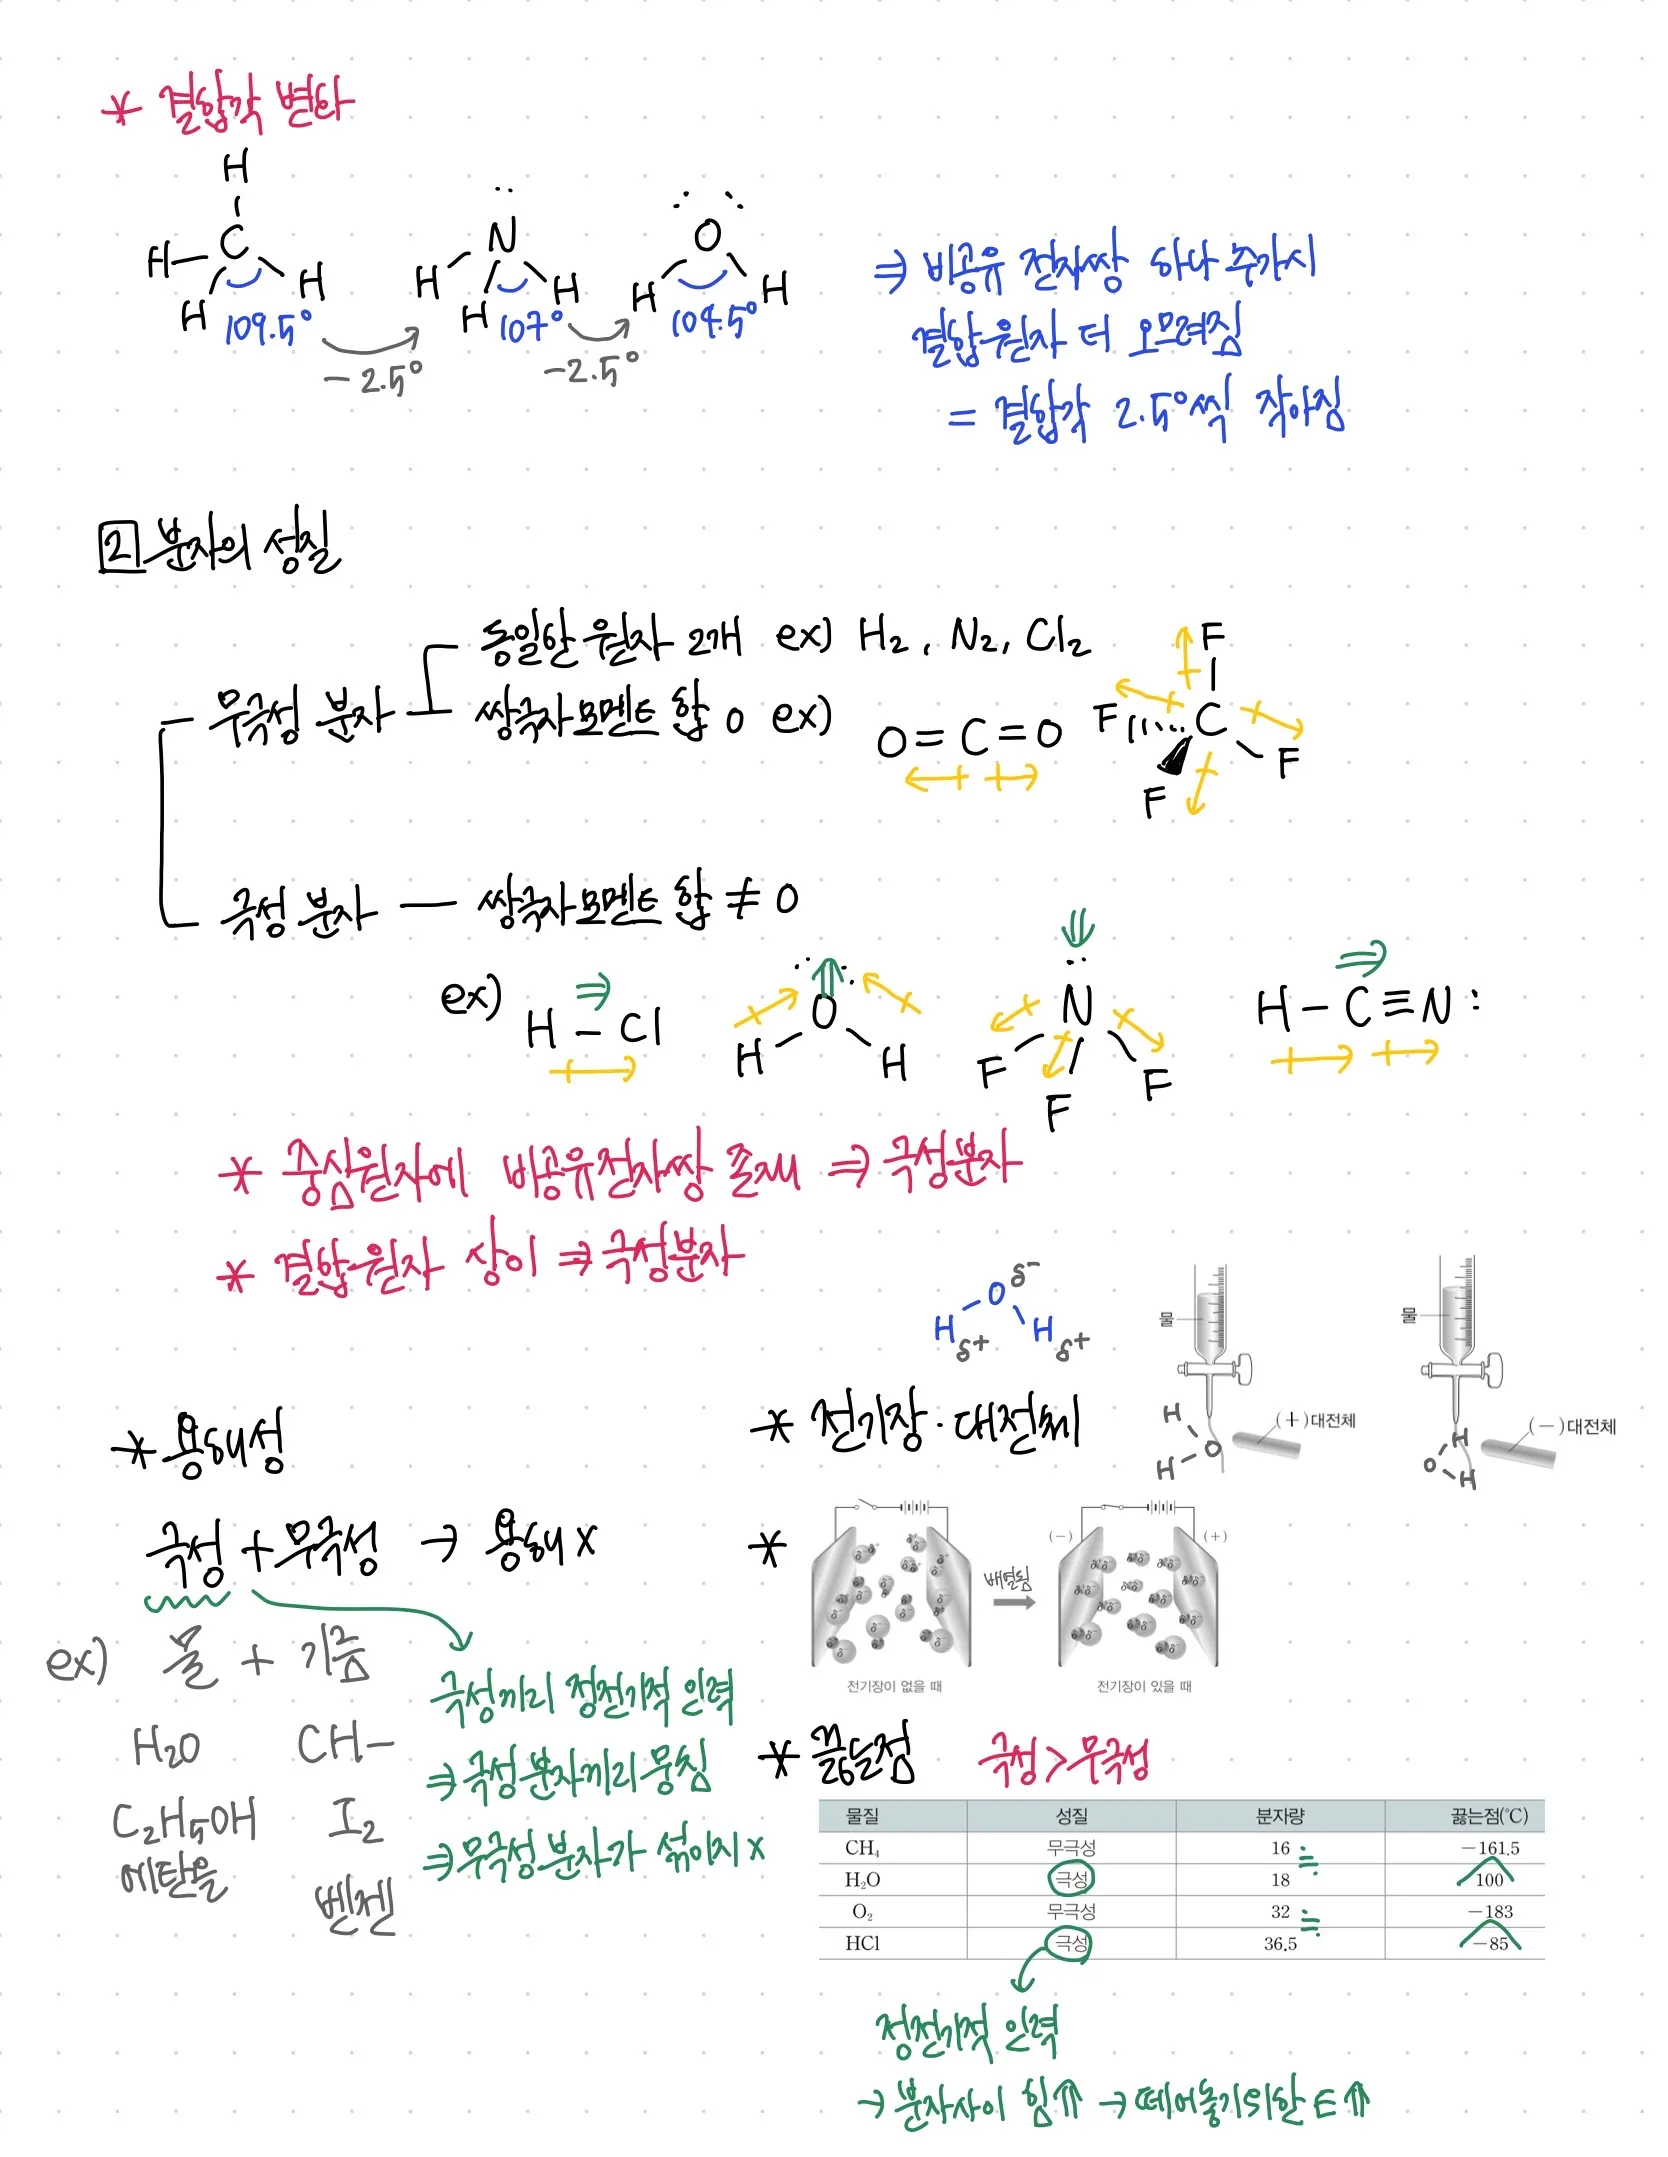 * 결합각 변화
H
H-C H
H
109.5°
-2.5°
N
H H
H
107°
-2.5°
O
H H
104.5°
⇒ 비공유 전자쌍 하나 추가시
결합원자 더 오므려짐
= 결합각 2.5°씩 작아짐
2 분자의 성질
무극성 분자
동일한 원자 2개 ex) H₂, N₂, Cl₂
쌍극자모멘트 합 0 ex)
O=C=O
F
F C
F
F
극성 분자 — 쌍극자모멘트 합 ≠ 0
ex)
H-Cl
O
H H
N
F F
F
H-C≡N:
* 중심원자에 비공유전자쌍 존재 ⇒ 극성분자
* 결합원자 상이 ⇒ 극성분자
* 용해성
극성 + 무극성 → 용해 x
ex) 물 + 기름
H₂O CH-
C₂H₅OH I₂
에탄올
벤젠
극성끼리 정전기적 인력
⇒ 극성 분자끼리 뭉침
⇒ 무극성 분자가 섞이지 x
O δ-
H H
δ+ δ+
* 전기장·대전체
물
(+)대전체
H
O
H
물
(-)대전체
H
O
H
*
배열됨
(-) (+)
전기장이 없을 때
전기장이 있을 때
* 끓는점 극성 > 무극성
물질 성질 분자량 끓는점(℃)
CH₄ 무극성 16 -161.5
H₂O 극성 18 100
O₂ 무극성 32 -183
HCl 극성 36.5 -85
≒
≒
정전기적 인력
→ 분자사이 힘⇑ → 떼어놓기위한 E⇑